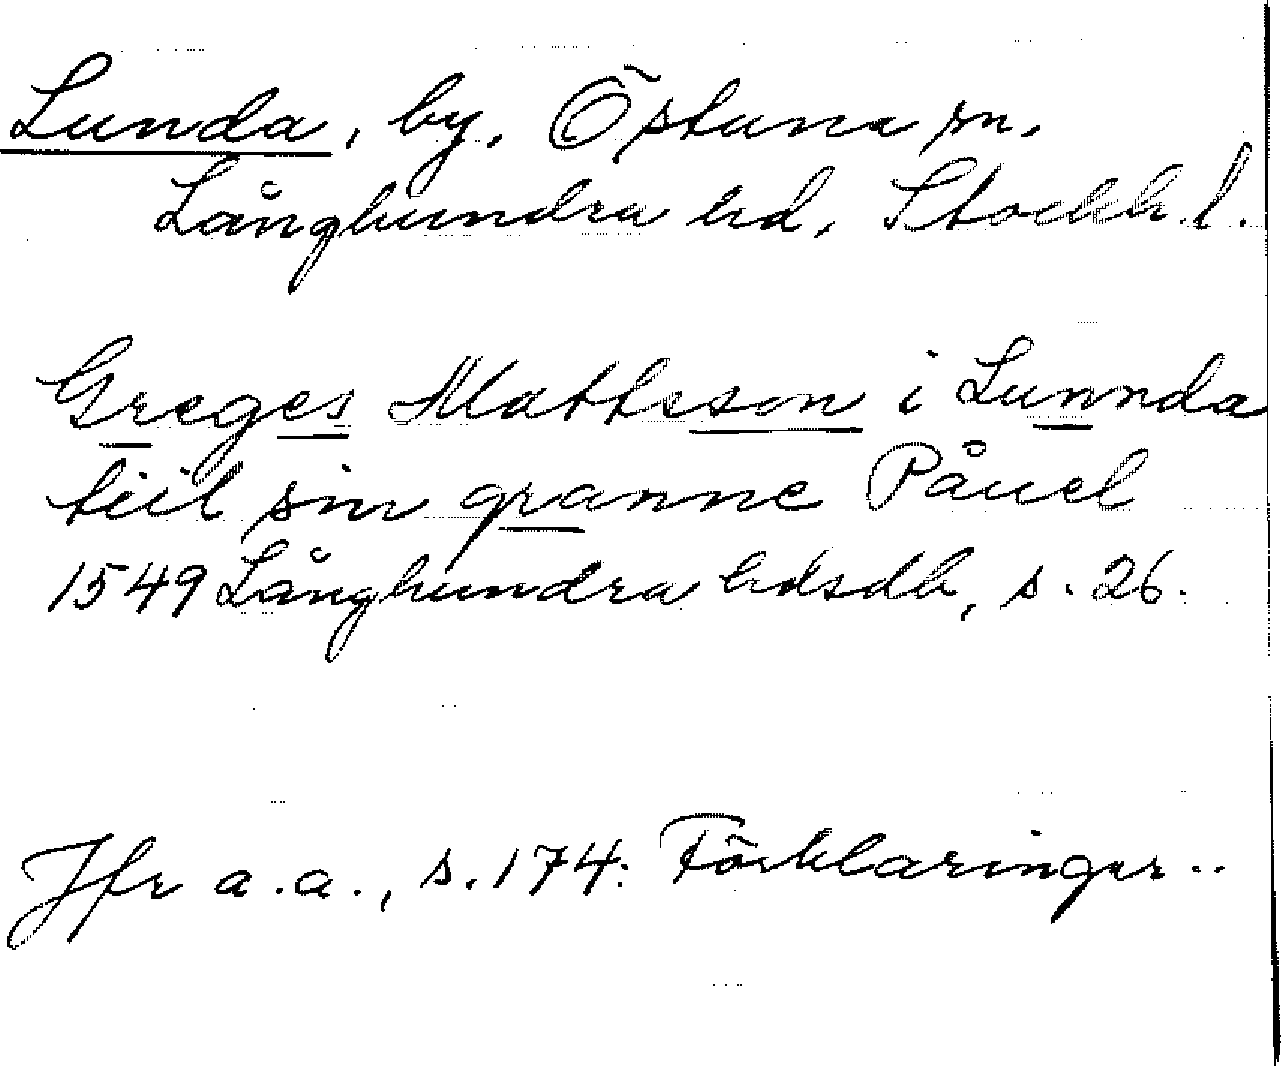 Lunda, by, Östuna sn,
Långhundra hd, Stockh. l.
Greges Mattsson i Lunnda
tiil sin granne Påuel
1549 Långhundra hdsdb, s. 26.
Jfr a.a., s. 174: Förklaringar..